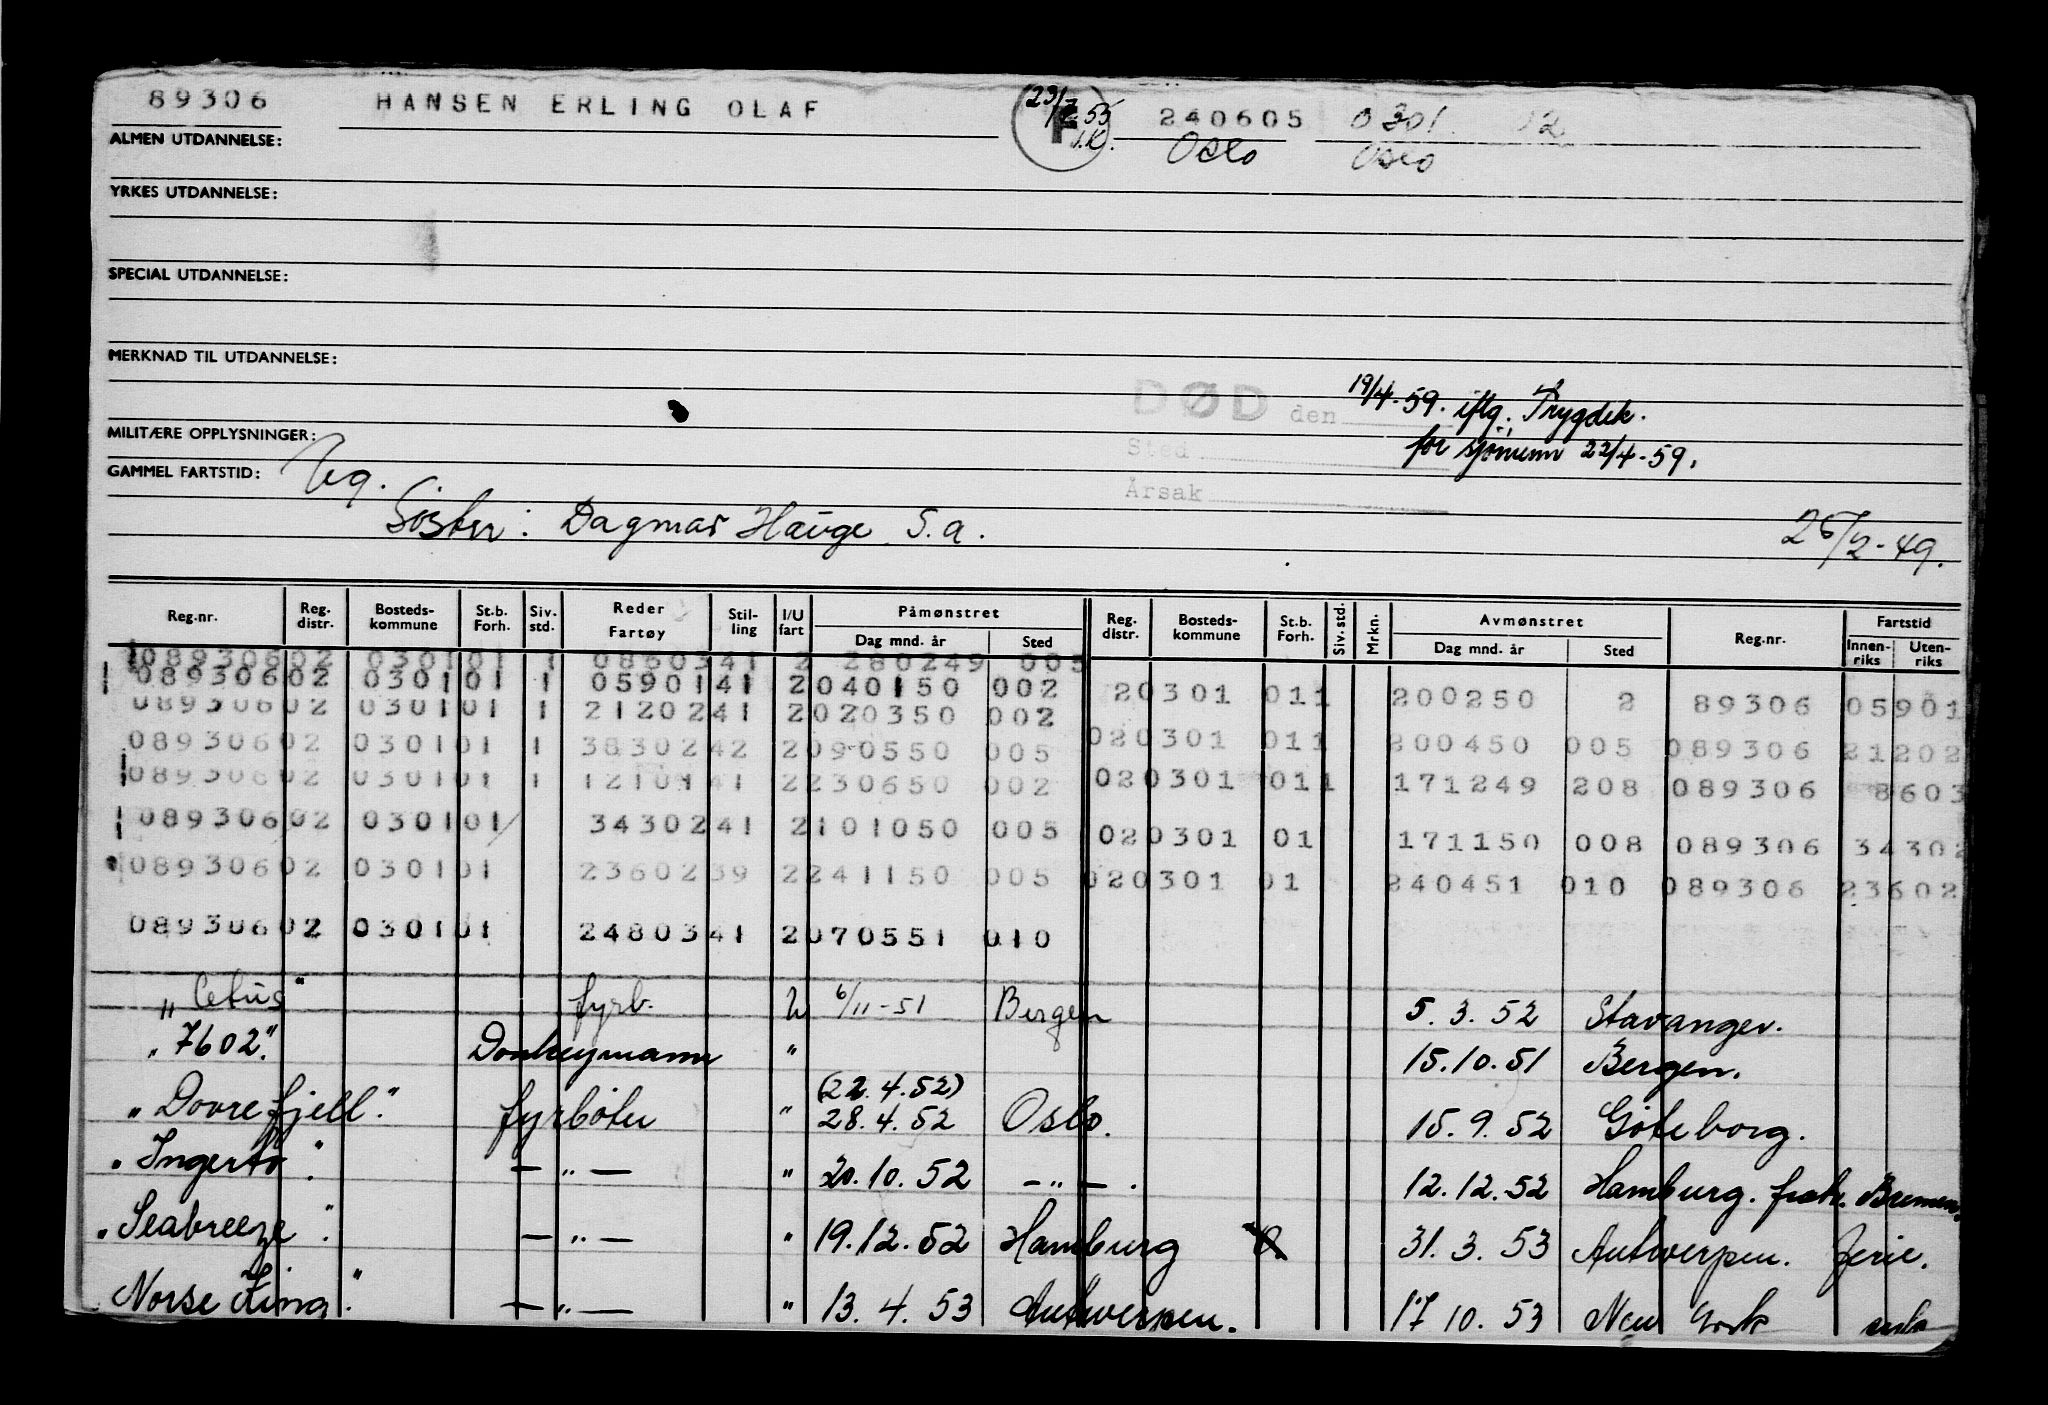 89306 HANSEN ERLING OLAF 23/7 55 F 240605 0301 02
ALMEN UTDANNELSE: Oslo Oslo
YRKES UTDANNELSE:
SPECIAL UTDANNELSE:
MERKNAD TIL UTDANNELSE:
DØD den 19/4-59. iflg. Trygdek.
MILITÆRE OPPLYSNINGER: Sted for sjømenn 22/4-59.
GAMMEL FARTSTID: Årsak
Søster: Dagmar Hauge S.a. 25/2-49.
Reg.nr. Reg. distr. Bosteds-kommune St.b. Forh. Siv. std. Reder Fartøy Stil-ling I/U fart Påmønstret Dag mnd. år Sted Reg. distr. Bosteds-kommune St.b. Forh. Siv. std. Mrkn. Avmønstret Dag mnd. år Sted Reg.nr. Fartstid Innen-riks Uten-riks
08930602 030101 1 0860341 2 280249 005
08930602 030101 1 0590141 2040150 002 20301 011 200250 2 89306 05901
08930602 030101 1 2120241 2020350 002
08930602 030101 1 3830242 2090550 005 020301 011 200450 005 089306 21202
08930602 030101 1 1210141 2230650 002 020301 011 171249 208 089306 8603
08930602 030101 3430241 2101050 005 020301 01 171150 008 089306 34302
08930602 030101 2360239 2241150 005 020301 01 240451 010 089306 23602
08930602 030101 2480341 2070551 010
"Cetus" fyrb. U 6/11-51 Bergen 5.3.52 Stavanger.
"7602". Donkeymann " 15.10.51 Bergen.
(22.4.52)
"Dovrefjell". fyrbøter " 28.4.52 Oslo. 15.9.52 Göteborg.
"Ingertø". — " — " 20.10.52 — " — . 12.12.52 Hamburg. fratr. Bremen.
"Seabreeze". — " — " 19.12.52 Hamburg 31.3.53 Antwerpen. Ferie.
"Norse King". — " — " 13.4.53 Antwerpen. 17.10.53 New York